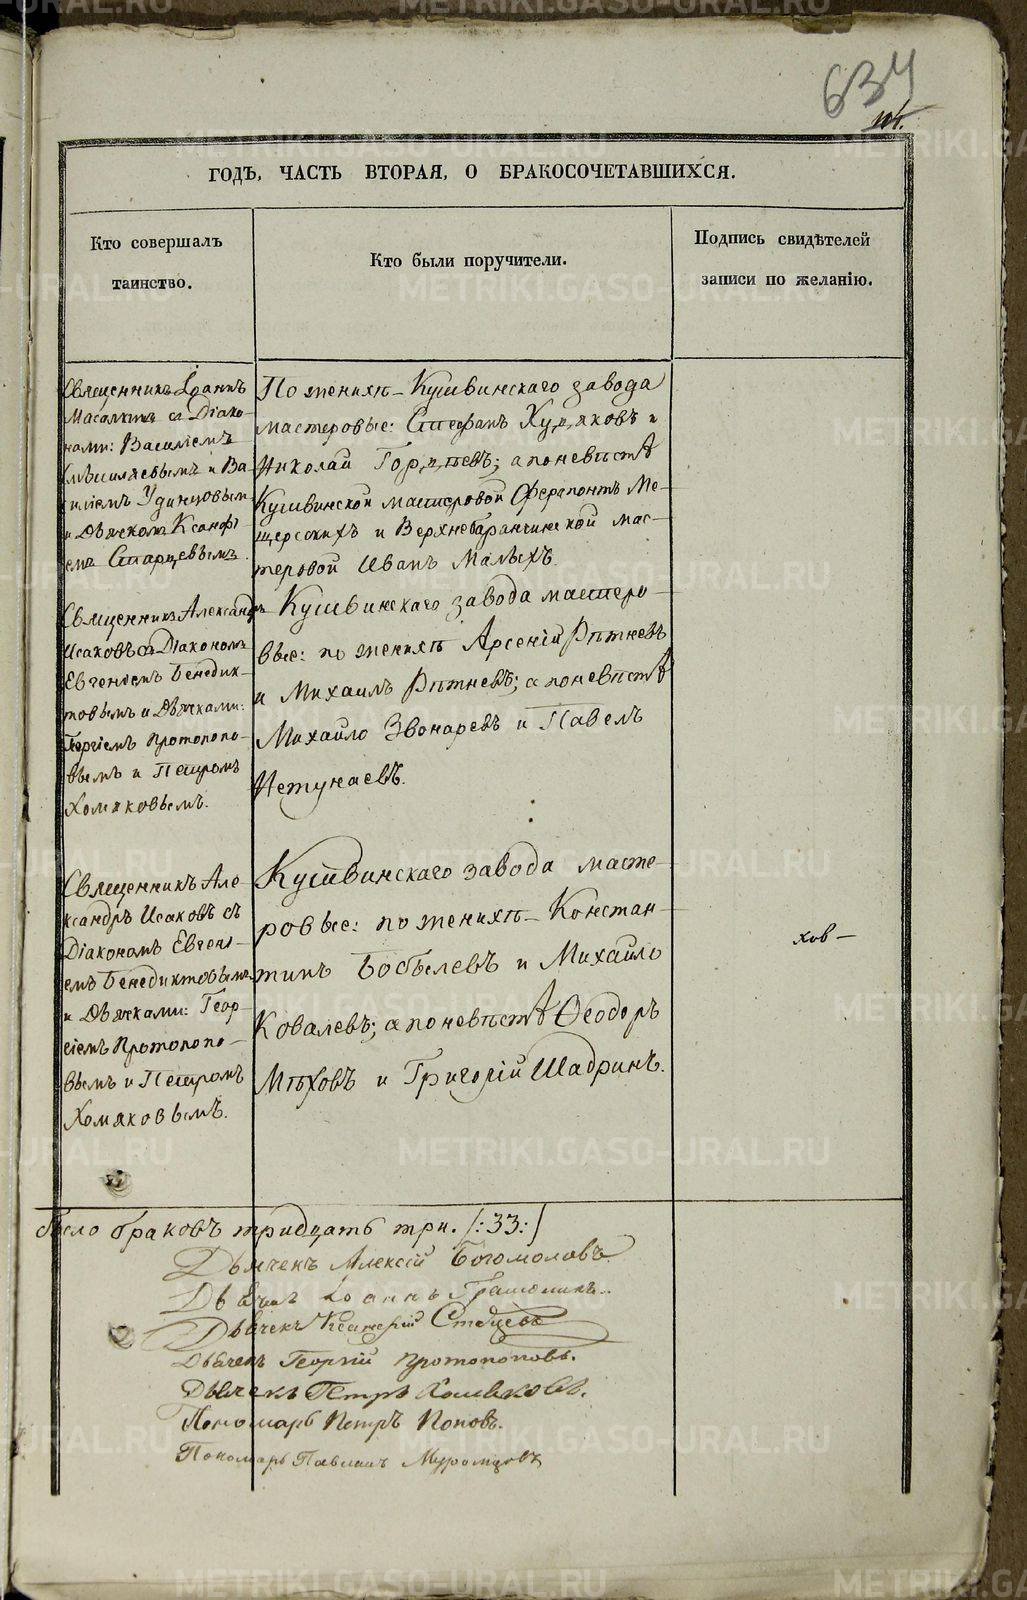 634
ГОДЪ, ЧАСТЬ ВТОРАЯ, О БРАКОСОЧЕТАВШИХСЯ.
Кто совершалъ
таинство.
Кто были поручители.
Подпись свидѣтелей
записи по желанію.
Священникъ Іоаннъ
съ Діако-
нами: Василіемъ
и Ва-
силіемъ Удинцовым
и Дьячкомъ Ксаноф
емъ Старцевымъ.
По женихѣ – Кушвинскаго завода
мастеровые: Стефанъ Худяковъ и
Николай Гордѣевъ; а по невѣстѣ
Кушвинской мастеровой Ферапонтъ Ме-
щерскихъ и Верхнебаранчинской мас-
теровой Иванъ Малыхъ.
Священникъ Александръ
Исаковъ съ Діакономъ
Евгеніемъ Бенедик-
товымъ и Дьячками:
Георгіемъ Протопопо-
вымъ и Петромъ
Хомяковымъ.
Кушвинскаго завода мастеро-
вые: по женихѣ Арсеній Рѣтневъ
и Михаилъ Рѣтневъ; а по невѣстѣ
Михайло Звонаревъ и Павелъ
Нетунаевъ.
Священникъ Але-
ксандръ Исаковъ съ
Діакономъ Евгені-
емъ Бенедиктовымъ
и Дьячками: Геор-
гіемъ Протопопо-
вымъ и Петромъ
Хомяковымъ.
Кушвинскаго завода масте-
ровые: по женихѣ – Констан-
тинъ Бобылевъ и Михайло
Ковалевъ; а по невѣстѣ Ѳеодоръ
Мѣховъ и Григорій Шадринъ.
ков –
было браковъ тридцать три. /:33:/
Дьячекъ Алексій Богомоловъ.
Дьячекъ Іоаннъ
Дьячекъ
Дьячекъ Георгій Протопоповъ.
Дьячекъ Петръ Хомяковъ.
Пономарь Петръ Поповъ.
Пономарь Павелъ Муромцовъ
METRIKI.GASO-URAL.RU